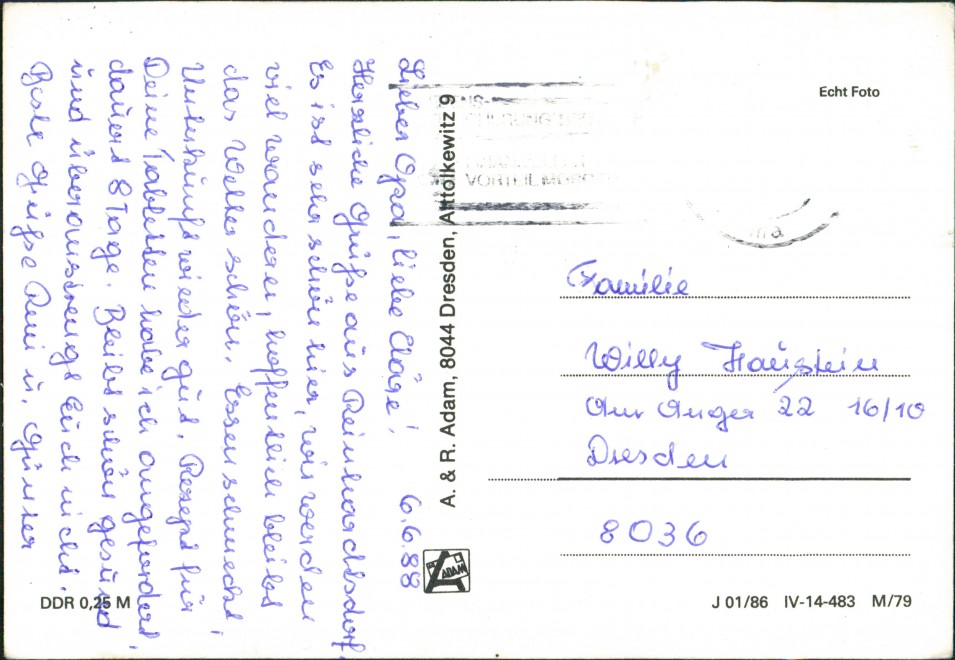 Lieber Opa, liebe Cläre! 6.6.88
Herzliche Grüße aus Reinhardtsdorf,
Es ist sehr schön hier, wir werden
viel wandern, hoffentlich bleibt
das Wetter schön. Essen schmeckt,
Unterkunft wieder gut. Rezept für
Deine Tabletten habe ich angefordert,
dauert 8 Tage. Bleibt schön gesund
und überanstrengt Euch nicht.
Beste Grüße Runi u. Günter
DDR 0,25 M
A. & R. Adam, 8044 Dresden, Alttolkewitz 9
ADAM
VORTEIL
Echt Foto
Familie
Willy Haustein
Am Anger 22 16/10
Dresden
8036
J 01/86 IV-14-483 M/79